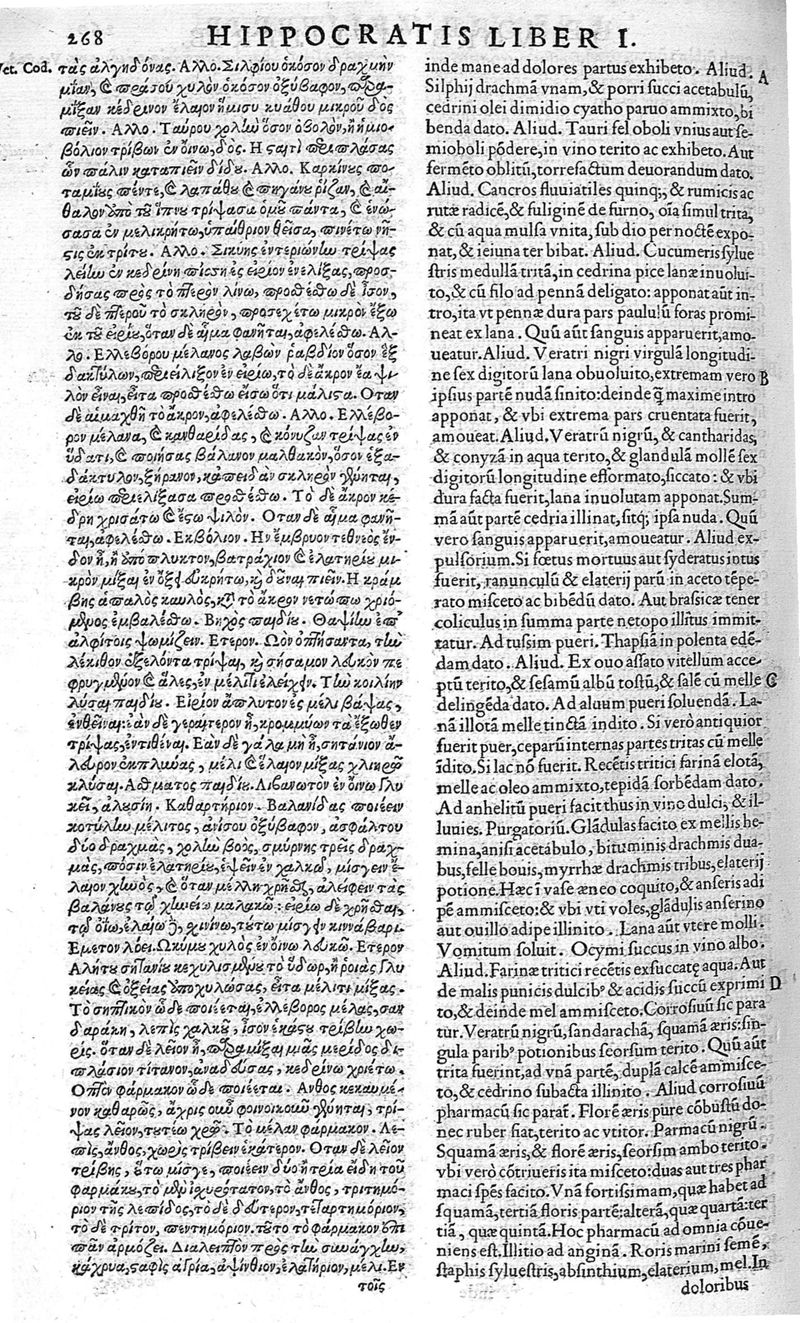 268 HIPPOCRATIS LIBER I.
Vet. Cod.
τὰς ἀλγηδόνας. Αλλο. Σιλφίου ὁκόσον δραχμὴν
μίαν, καὶ πράσου χυλὸν ὁκόσον ὀξύβαφον, παρα-
μίξαν κέδρινον ἔλαιον ἥμισυ κυάθου μικροῦ δὸς
πιεῖν. Αλλο. Ταύρου χολὴν ὅσον ὀβολὸν, ἢ ἡμιο-
βόλιον τρίβων ἐν οἴνῳ, δός. Η σταιτὶ περιπλάσας
ὧν πάλιν καταπιεῖν δίδου. Αλλο. Καρκίνους πο-
ταμίους πέντε, καὶ λαπάθου καὶ πηγάνου ῥίζαν, καὶ αἴ-
θαλον ὑπὸ τοῦ ἰπνοῦ τρίψασα ὁμοῦ πάντα, καὶ ἑνώ-
σασα ἐν μελικρήτῳ, ὑπαίθριον θεῖσα, πινέτω νῆ-
στις ἐκ τρίτου. Αλλο. Σικύης ἐντεριώνην τρίψας
λείην ἐν κεδρίνῃ πίσσῃ ἐς εἰρίον ἐνελίξας, προσ-
δήσας πρὸς τὸ πτερὸν λίνῳ, προσθέσθω δὲ ἴσον,
τοῦ δὲ πτεροῦ τὸ σκληρὸν, προσεχέτω μικρὸν ἔξω
ἐκ τοῦ εἰρίου, ὅταν δὲ αἷμα φανῆται, ἀφελέσθω. Αλ-
λο. Ελλεβόρου μέλανος λαβὼν ῥαβδίον ὅσον ἓξ
δακτύλων, περιείλιξον ἐν εἰρίῳ, τὸ δὲ ἄκρον ἔα ψι-
λὸν εἶναι, εἶτα προσθέσθω εἴσω ὅτι μάλιστα. Οταν
δὲ αἱμαχθῇ τὸ ἄκρον, ἀφελέσθω. Αλλο. Ελλέβο-
ρον μέλανα, καὶ κανθαρίδας, καὶ κόνυζαν τρίψας ἐν
ὕδατι, καὶ ποιήσας βάλανον μαλθακὸν, ὅσον ἑξα-
δάκτυλον, ξήρανον, κἀπειδὰν σκληρὸν γένηται,
εἰρίῳ περιελίξασα προσθέσθω. Τὸ δὲ ἄκρον κέ-
δρῃ χρισάτω καὶ ἔστω ψιλόν. Οταν δὲ αἷμα φανῆ-
ται, ἀφελέσθω. Εκβόλιον. Ην ἔμβρυον τεθνεὸς ἔν-
δον ᾖ, ἢ ὑπόπλυκτον, βατράχιον καὶ ἐλατηρίου μι-
κρὸν μίξαι ἐν ὄξει εὐκρήτῳ, καὶ δοῦναι πιεῖν. Η κράμ
βης ἁπαλὸς καυλὸς, κατὰ τὸ ἄκρον νετώπῳ χριό-
μενος ἐμβαλέσθω. Βηχὸς παιδίου. Θαψίην ἐπ'
ἀλφίτοις ψωμίζειν. Ετερον. Ωὸν ὀπτήσαντα, τὴν
λέκιθον ἐξελόντα τρίψαι, καὶ σήσαμον λευκὸν πε
φρυγμένον καὶ ἅλες, ἐν μέλιτι ἐλείχειν. Τὴν κοιλίην
λῦσαι παιδίου. Εἰρίον ἄπλυτον ἐς μέλι βάψας,
ἐνθεῖναι· ἐὰν δὲ γεραίτερον ᾖ, κρομμύων τὰ ἔξωθεν
τρίψας, ἐντιθέναι. Εὰν δὲ γάλα μὴ ᾖ, σητάνιον ἄ-
λευρον ἐκπλύνας, μέλι καὶ ἔλαιον μίξας χλιαρῷ
κλύσαι. Ασθματος παιδίου. Λιβανωτὸν ἐν οἴνῳ γλυ
κεῖ, ἀλουσίη. Καθαρτήριον. Βαλανίδας ποιέειν
κοτύλην μέλιτος, ἀνίσου ὀξύβαφον, ἀσφάλτου
δύο δραχμὰς, χολὴν βοὸς, σμύρνης τρεῖς δραχ-
μὰς, πόσιν ἐλατηρίου, ἑψεῖν ἐν χαλκῷ, μίσγειν ἔ-
λαιον χηνὸς, καὶ ὅταν μέλλῃ χρῆσθαι, ἀλείφειν τὰς
βαλάνους τῷ χηνείῳ μαλακῶ· εἰρίῳ δὲ χρῆσθαι,
τῷ οἴῳ, ἐλαίῳ
Εμετον λύει. Ωκύμου χυλὸς ἐν οἴνῳ λευκῷ. Ετερον
Αλήτου σητανίου κεχυλισμένου τὸ ὕδωρ, ἢ ῥοιᾶς γλυ
κείας καὶ ὀξείας ὑποχυλώσας, εἶτα μέλιτι μίξας.
Τὸ σηπτικὸν ὧδε ποιέεται, ἐλλέβορος μέλας, σαν
δαράκη, λεπὶς χαλκοῦ, ἴσον ἑκάστου τρίβειν χω-
ρίς. ὅταν δὲ λεῖον ᾖ, παραμίξαι μιᾶς μερίδος δι-
πλάσιον τίτανον, ἀναδεύσας, κεδρίνῳ χριέτω.
Οπτὸν φάρμακον ὧδε ποιέεται. Ανθος κεκαυμέ-
νον καθαρῶς, ἄχρις οὗ φοινικοῦν γένηται, τρί-
ψας λεῖον, τουτέῳ χρῶ. Τὸ μέλαν φάρμακον. Λε-
πὶς, ἄνθος, χωρὶς τρίβειν ἑκάτερον. Οταν δὲ λεῖον
τρίβῃς, οὕτω μίσγε, ποιέειν δύο ἢ τρία εἴδη τοῦ
φαρμάκου, τὸ μὲν ἰσχυρότατον, τὸ ἄνθος, τριτημό-
ριον τῆς λεπίδος, τὸ δὲ δεύτερον, τεταρτημόριον,
τὸ δὲ τρίτον, πεντημόριον. τοῦτο τὸ φάρμακον ἐπὶ
πᾶν ἁρμόζει. Διάλειπτον πρὸς τὴν συνάγχην,
κάχρυα, σταφὶς ἀγρία, ἀψίνθιον, ἐλατήριον, μέλι. Εν
τοῖς
inde mane ad dolores partus exhibeto. Aliud. A
Silphij drachmā vnam, & porri succi acetabulū,
cedrini olei dimidio cyatho paruo ammixto, bi
benda dato. Aliud. Tauri fel oboli vnius aut se-
mioboli pōdere, in vino terito ac exhibeto. Aut
fermēto oblitū, torrefactum deuorandum dato.
Aliud. Cancros fluuiatiles quinq;, & rumicis ac
rutæ radicē, & fuliginē de furno, oīa simul trita,
& cū aqua mulsa vnita, sub dio per noctē expo-
nat, & ieiuna ter bibat. Aliud. Cucumeris sylue
stris medullā tritā, in cedrina pice lanæ inuolui-
to, & cū filo ad pennā deligato: apponat aūt in-
tro, ita vt pennæ dura pars paululū foras promi-
neat ex lana. Quū aūt sanguis apparuerit, amo-
ueatur. Aliud. Veratri nigri virgulā longitudi-
ne sex digitorū lana obuoluito, extremam vero B
ipsius partē nudā sinito: deinde q̄ maxime intro
apponat, & vbi extrema pars cruentata fuerit,
amoueat. Aliud. Veratrū nigrū, & cantharidas,
& conyzā in aqua terito, & glandulā mollē sex
digitorū longitudine efformato, siccato: & vbi
dura facta fuerit, lana inuolutam apponat. Sum-
mā aūt partē cedria illinat, sitq; ipsa nuda. Quū
vero sanguis apparuerit, amoueatur. Aliud ex-
pulsorium. Si fœtus mortuus aut syderatus intus
fuerit, ranunculū & elaterij parū in aceto tēpe-
rato misceto ac bibēdū dato. Aut brassicæ tener
coliculus in summa parte netopo illitus immit-
tatur. Ad tussim pueri. Thapsiā in polenta edē-
dam dato. Aliud. Ex ouo assato vitellum acce-
ptū terito, & sesamū albū tostū, & salē cū melle C
delingēda dato. Ad aluum pueri soluendā. La-
nā illotā melle tinctā indito. Si vero antiquior
fuerit puer, ceparū internas partes tritas cū melle
īdito. Si lac nō fuerit. Recētis tritici farinā elotā,
melle ac oleo ammixto, tepidā sorbēdam dato.
Ad anhelitū pueri facit thus in vino dulci, & il-
luuies. Purgatoriū. Glādulas facito ex mellis he-
mina, anisi acetabulo, bituminis drachmis dua-
bus, felle bouis, myrrhæ drachmis tribus, elaterij
potione. Hæc ī vase æneo coquito, & anseris adi
pē ammisceto: & vbi vti voles, glādulis anserino
aut ouillo adipe illinito. Lana aūt vtere molli.
Vomitum soluit. Ocymi succus in vino albo.
Aliud. Farinæ tritici recētis exsuccatę aqua. Aut
de malis punicis dulcibᵒ & acidis succū exprimi D
to, & deinde mel ammisceto. Corrosiuū sic para
tur. Veratrū nigrū, sandarachā, squamā æris: sin-
gula paribᵒ potionibus seorsum terito. Quū aūt
trita fuerint, ad vnā partē, duplā calcē ammisce-
to, & cedrino subacta illinito. Aliud corrosiuū
pharmacū sic parat. Florē æris pure cōbustū do-
nec ruber fiat, terito ac vtitor. Parmacū nigrū.
Squamā æris, & florē æris, seorsim ambo terito.
vbi vero cōtriueris ita misceto: duas aut tres phar
maci spēs facito. Vnā fortissimam, quæ habet ad
squamā, tertiā floris partē: alterā, quæ quartā: ter
tiā, quæ quintā. Hoc pharmacū ad omnia cōue-
niens est. Illitio ad anginā. Roris marini semē,
staphis syluestris, absinthium, elaterium, mel. In
doloribus